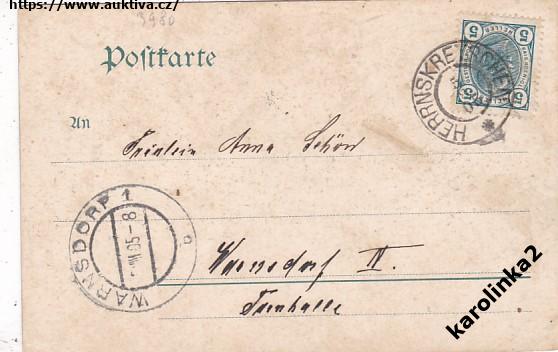 https://www.auktiva.cz/
3980
Postkarte
5 HELLER 5
HERRNSKRETSCHEN
An
Fräulein Anna Schön
WARNSDORF 1
VIII 05-8
a
Warnsdorf II.
Turnhalle
karolinka2